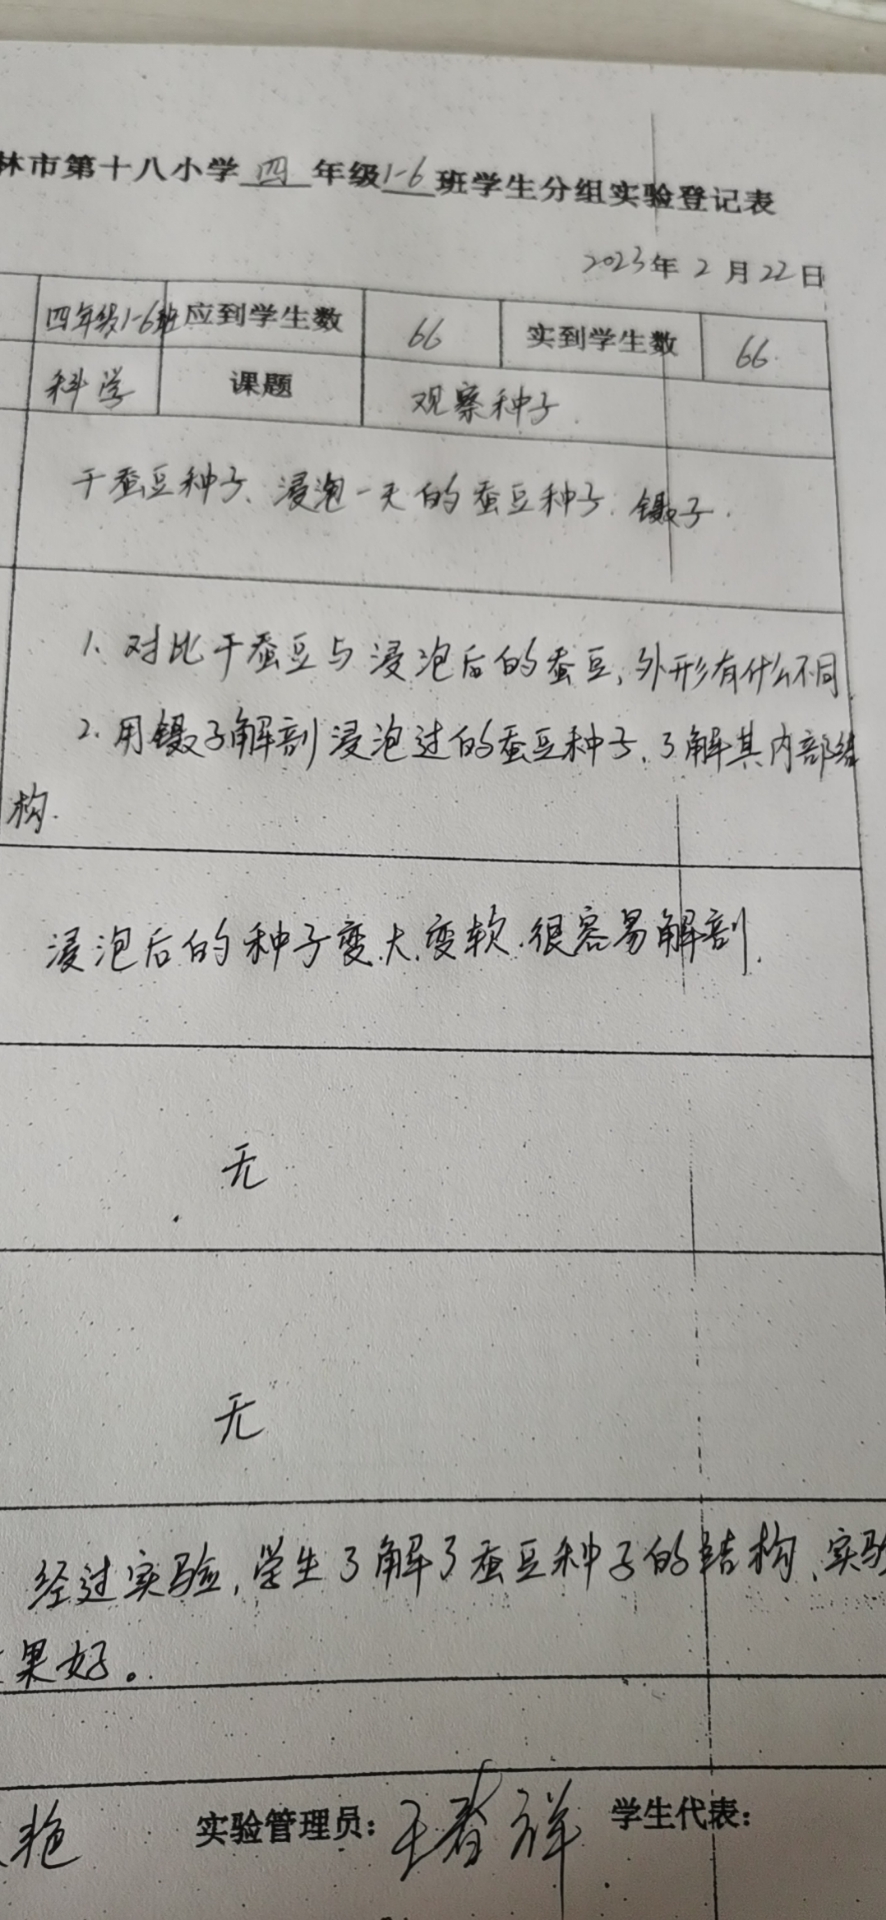 林市第十八小学四年级1-6班学生分组实验登记表
2023年2月22日
四年级1-6班 应到学生数 66 实到学生数 66
科学 课题 观察种子
干蚕豆种子、浸泡一天的蚕豆种子、镊子.
1、对比干蚕豆与浸泡后的蚕豆,外形有什么不同.
2、用镊子解剖浸泡过的蚕豆种子、了解其内部结
构.
浸泡后的种子变大.变软.很容易解剖.
无
无
经过实验,学生了解了蚕豆种子的结构、实验
果好。
艳 实验管理员: 王春祥 学生代表: